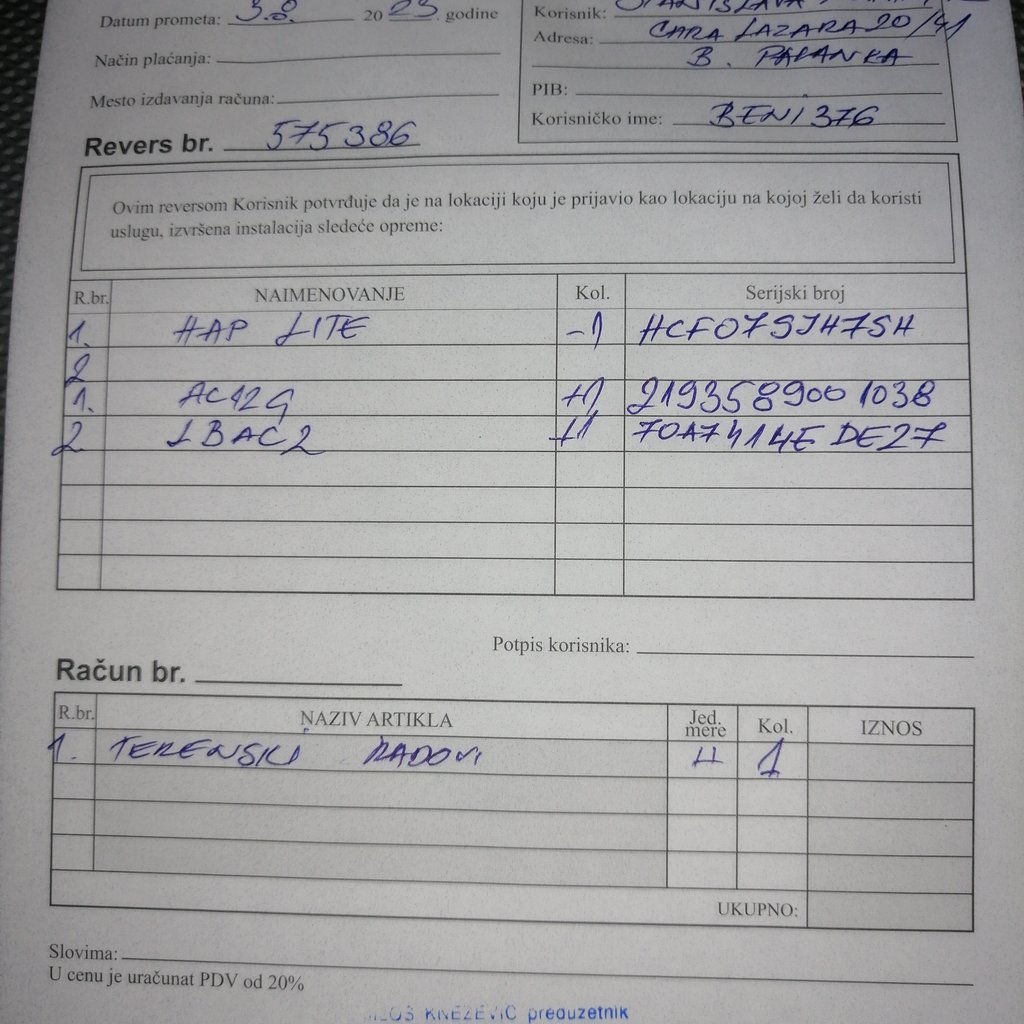 Datum prometa: 3.8. 2023. godine
Način plaćanja:
Mesto izdavanja računa:
Korisnik:
Adresa: CARA LAZARA 20/41
B. PALANKA
PIB:
Korisničko ime: BENI376
Revers br. 575386
Ovim reversom Korisnik potvrđuje da je na lokaciji koju je prijavio kao lokaciju na kojoj želi da koristi
uslugu, izvršena instalacija sledeće opreme:
R.br. NAIMENOVANJE Kol. Serijski broj
1. HAP LITE -1 HCF079JH7SH
2
1. AC12G +1 2193589001038
2 LBAC2 +1 70A7414EDE27
Potpis korisnika:
Račun br.
R.br. NAZIV ARTIKLA Jed. mere Kol. IZNOS
1. TERENSKI RADOVI H 1
UKUPNO:
Slovima:
U cenu je uračunat PDV od 20%
KNEZEVIC preduzetnik